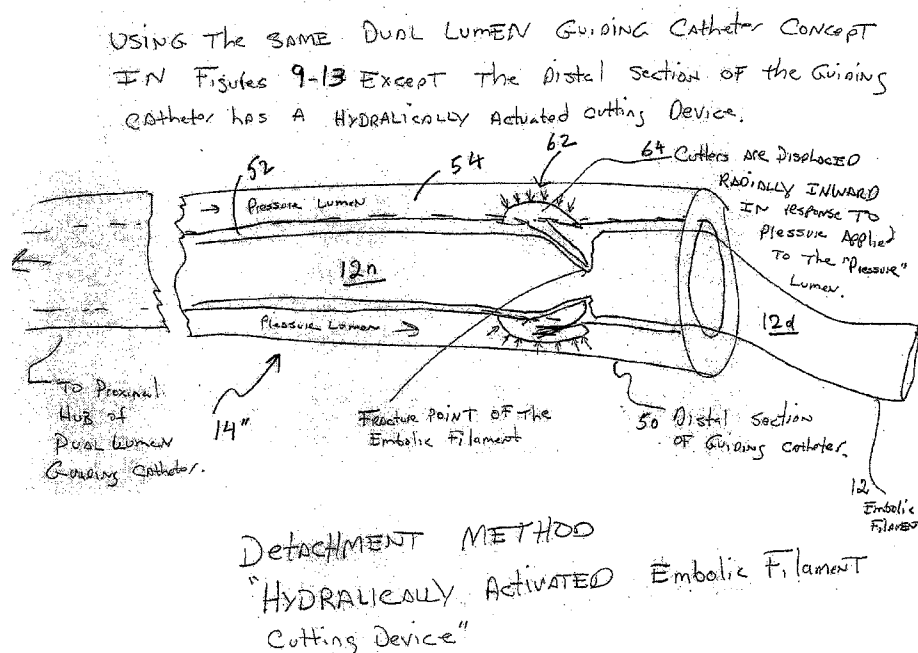 USING The SAME DUAL LUMEN GUIDING Catheter CONCEPT
IN Figures 9-13 Except The Distal Section OF the Guiding
Catheter has A HYDRALICALLY Actuated cutting Device.
62
64 Cutters ARE DISPLACED
RADIALLY INWARD
IN response TO
Pressure Applied
TO The "Pressure"
Lumen.
52
54
→ Pressure Lumen
12n
Pressure Lumen →
12d
TO Proximal
HUB of
DUAL LUMEN
Guiding Catheter.
14"
Fracture POINT OF THE
Embolic Filament
50 Distal Section
OF Guiding Catheter.
12
Embolic
Filament
DETACHMENT METHOD
"HYDRALICALLY ACTIVATED Embolic Filament
Cutting Device"